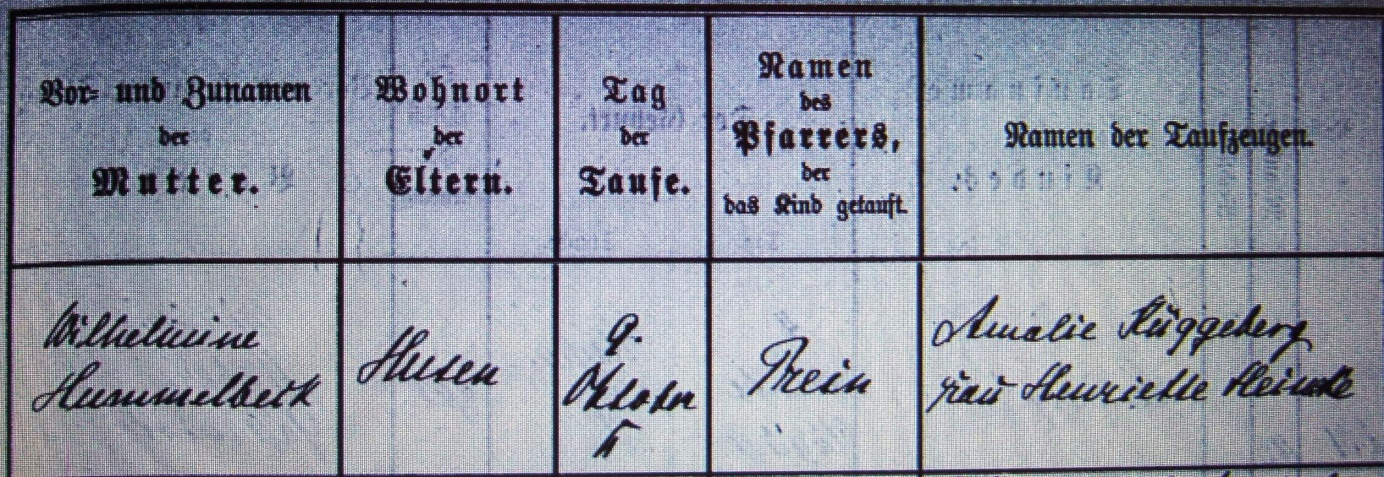 Vor- und Zunamen
der
Mutter.
Wohnort
der
Eltern.
Tag
der
Taufe.
Namen
des
Pfarrers,
der
das Kind getauft.
Namen der Taufzeugen.
Wilhelmine
Hummelbeck
Husen
9.
Oktober
Trein
Amalie Rüggeberg
Frau Henriette